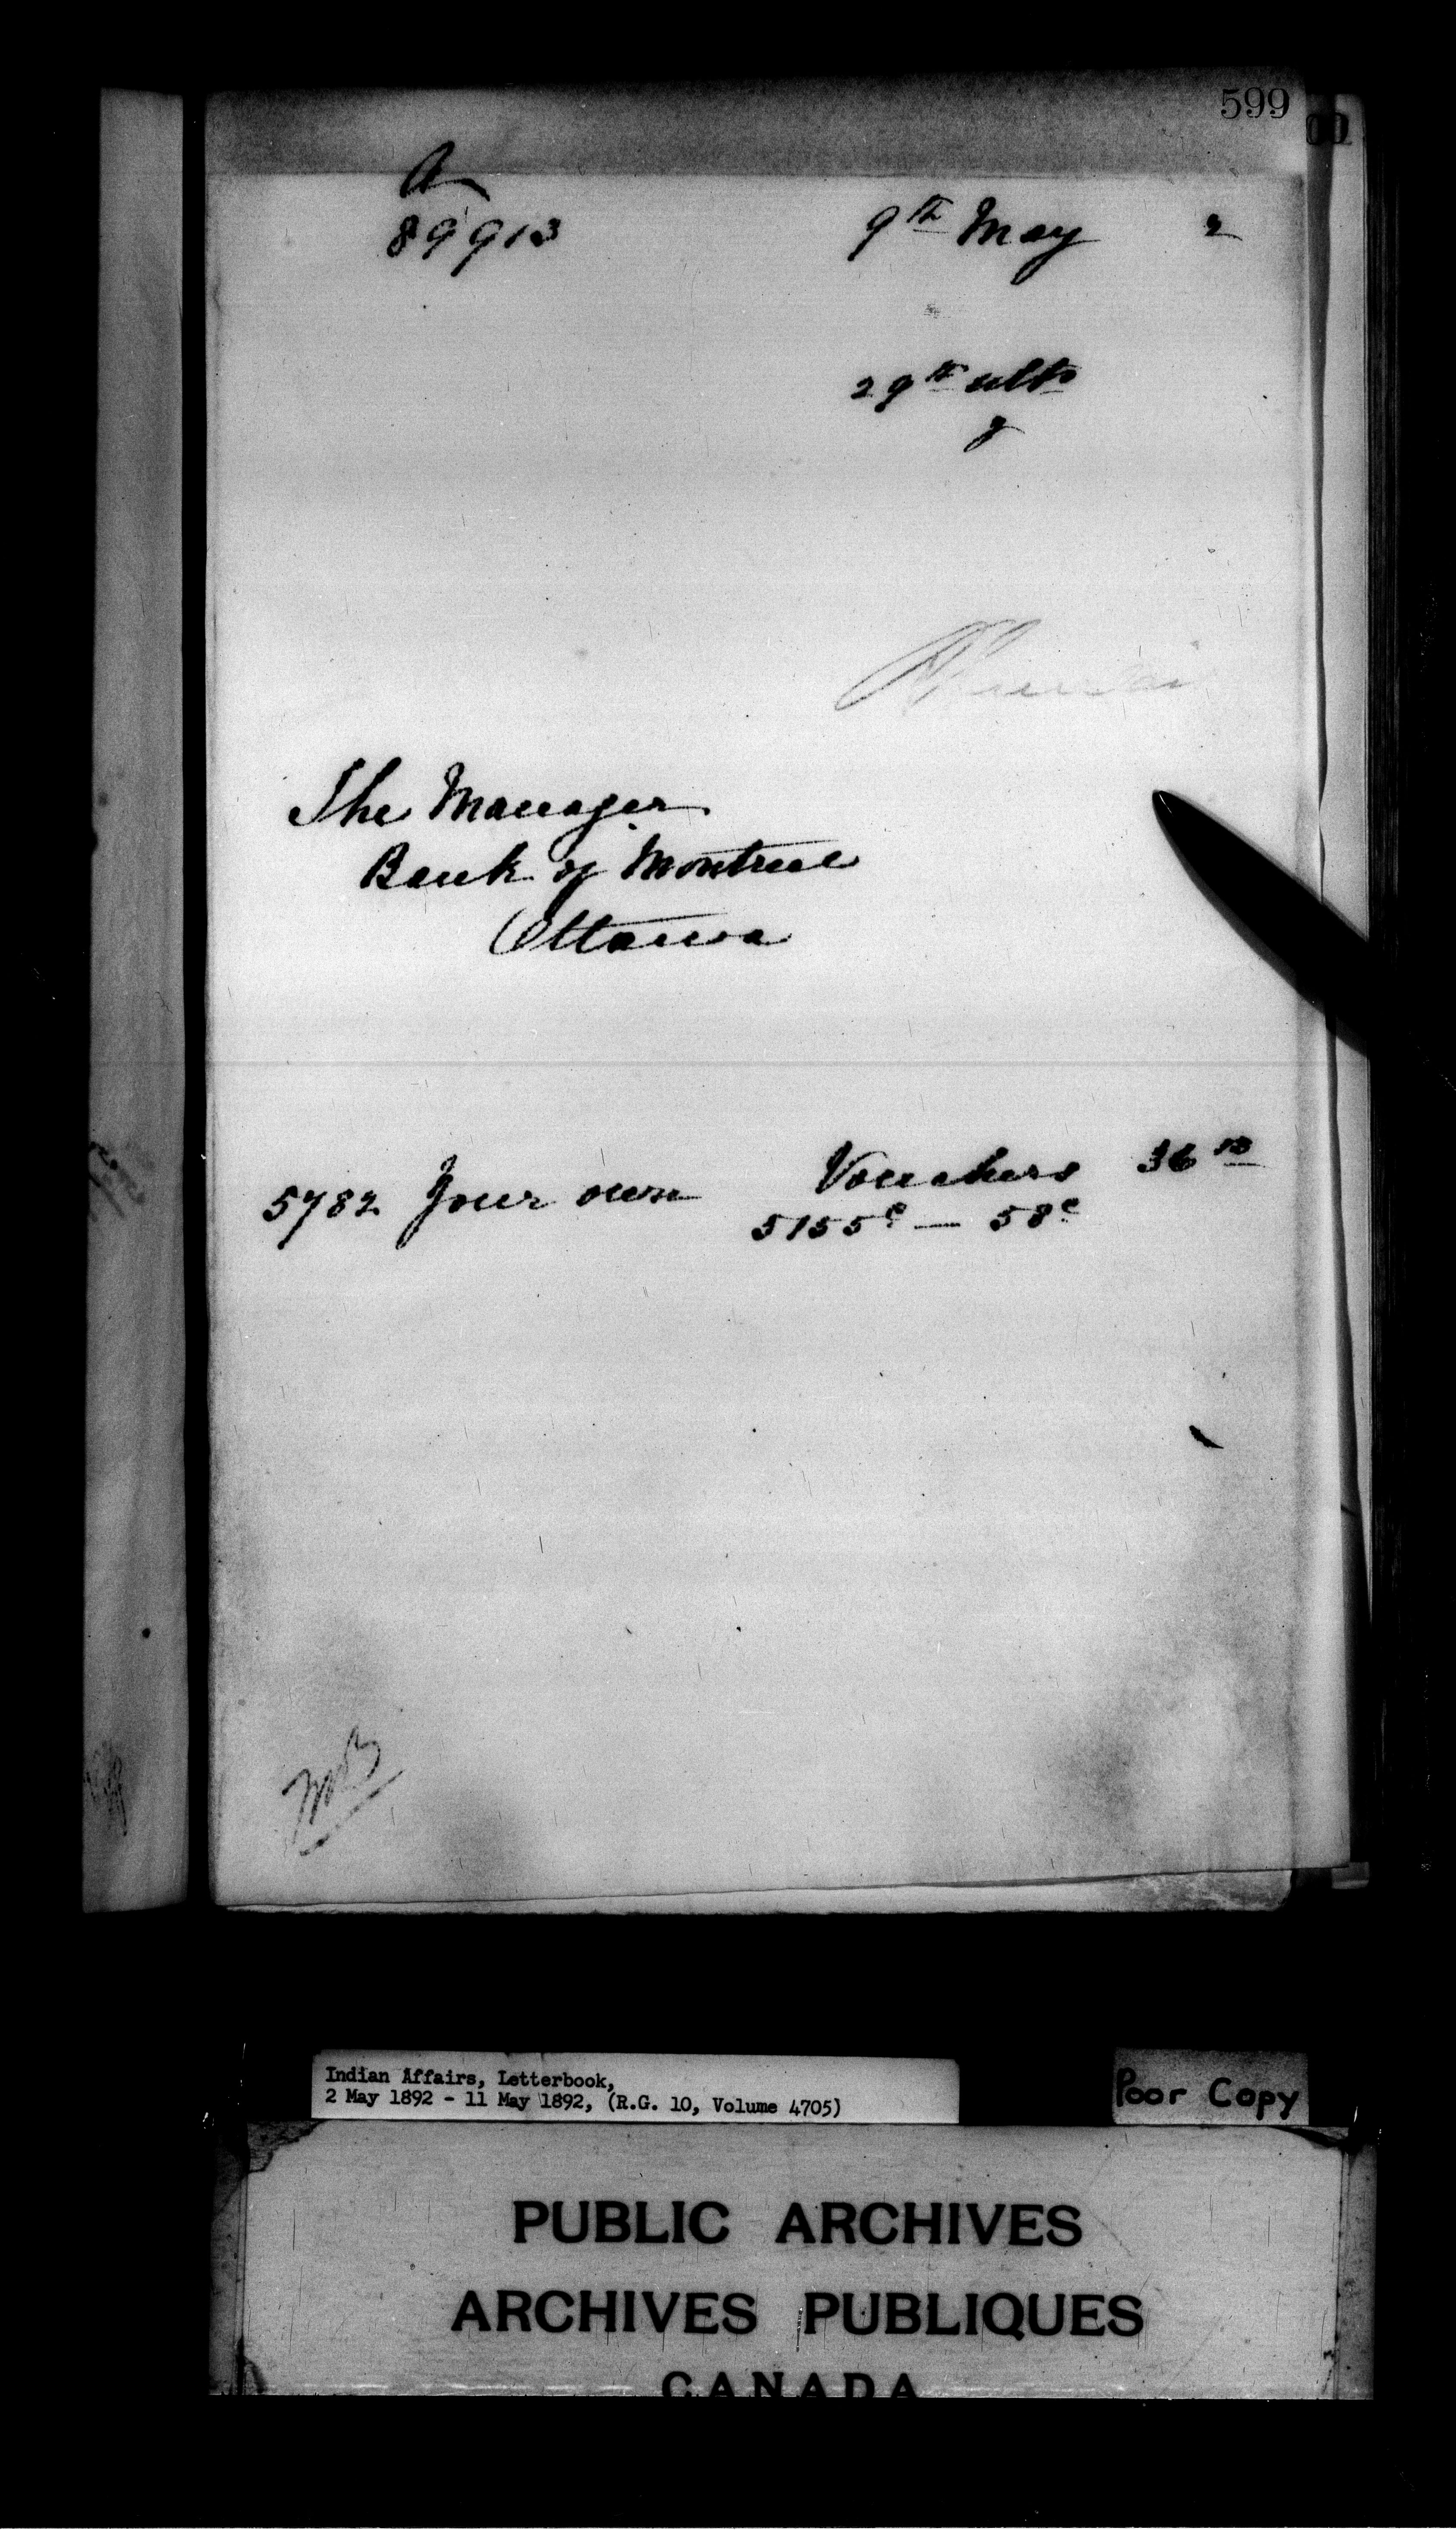 599
A
89913 9th May 2
29th ulto
y
The Manager
Bank of Montreal
Ottawa
5782 Your own Vouchers 36 13
5155c — 58c
MB
Indian Affairs, Letterbook,
2 May 1892 - 11 May 1892, (R.G. 10, Volume 4705)
Poor Copy
PUBLIC ARCHIVES
ARCHIVES PUBLIQUES
CANADA